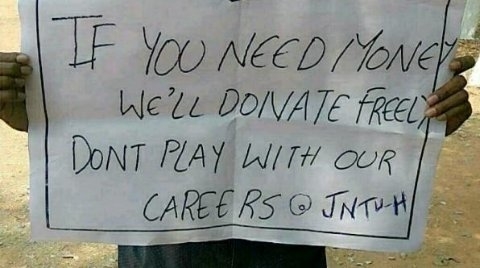 IF YOU NEED MONEY
WE'LL DONATE FREELY
DONT PLAY WITH OUR
CAREERS @ JNTU-H